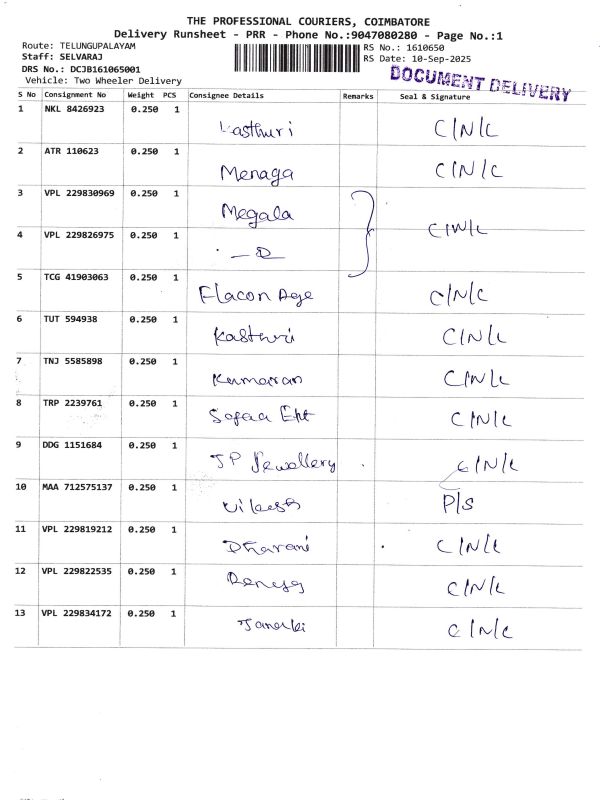 THE PROFESSIONAL COURIERS, COIMBATORE
Delivery Runsheet - PRR - Phone No.:9047080280 - Page No.:1
Route: TELUNGUPALAYAM RS No.: 1610650
Staff: SELVARAJ RS Date: 10-Sep-2025
DRS No.: DCJB161065001
Vehicle: Two Wheeler Delivery
DOCUMENT DELIVERY
S No Consignment No Weight PCS Consignee Details Remarks Seal & Signature
1 NKL 8426923 0.250 1 Kasthuri C/N/C
2 ATR 110623 0.250 1 Menaga C/N/C
3 VPL 229830969 0.250 1 Megala C/N/C
4 VPL 229826975 0.250 1
5 TCG 41903063 0.250 1 Flacon Age C/N/C
6 TUT 594938 0.250 1 Kasthuri C/N/C
7 TNJ 5585898 0.250 1 Kumaran C/N/C
8 TRP 2239761 0.250 1 C/N/C
9 DDG 1151684 0.250 1 JP Jewellery C/N/C
10 MAA 712575137 0.250 1 P/S
11 VPL 229819212 0.250 1 Dharani C/N/C
12 VPL 229822535 0.250 1 C/N/C
13 VPL 229834172 0.250 1 Janaki C/N/C